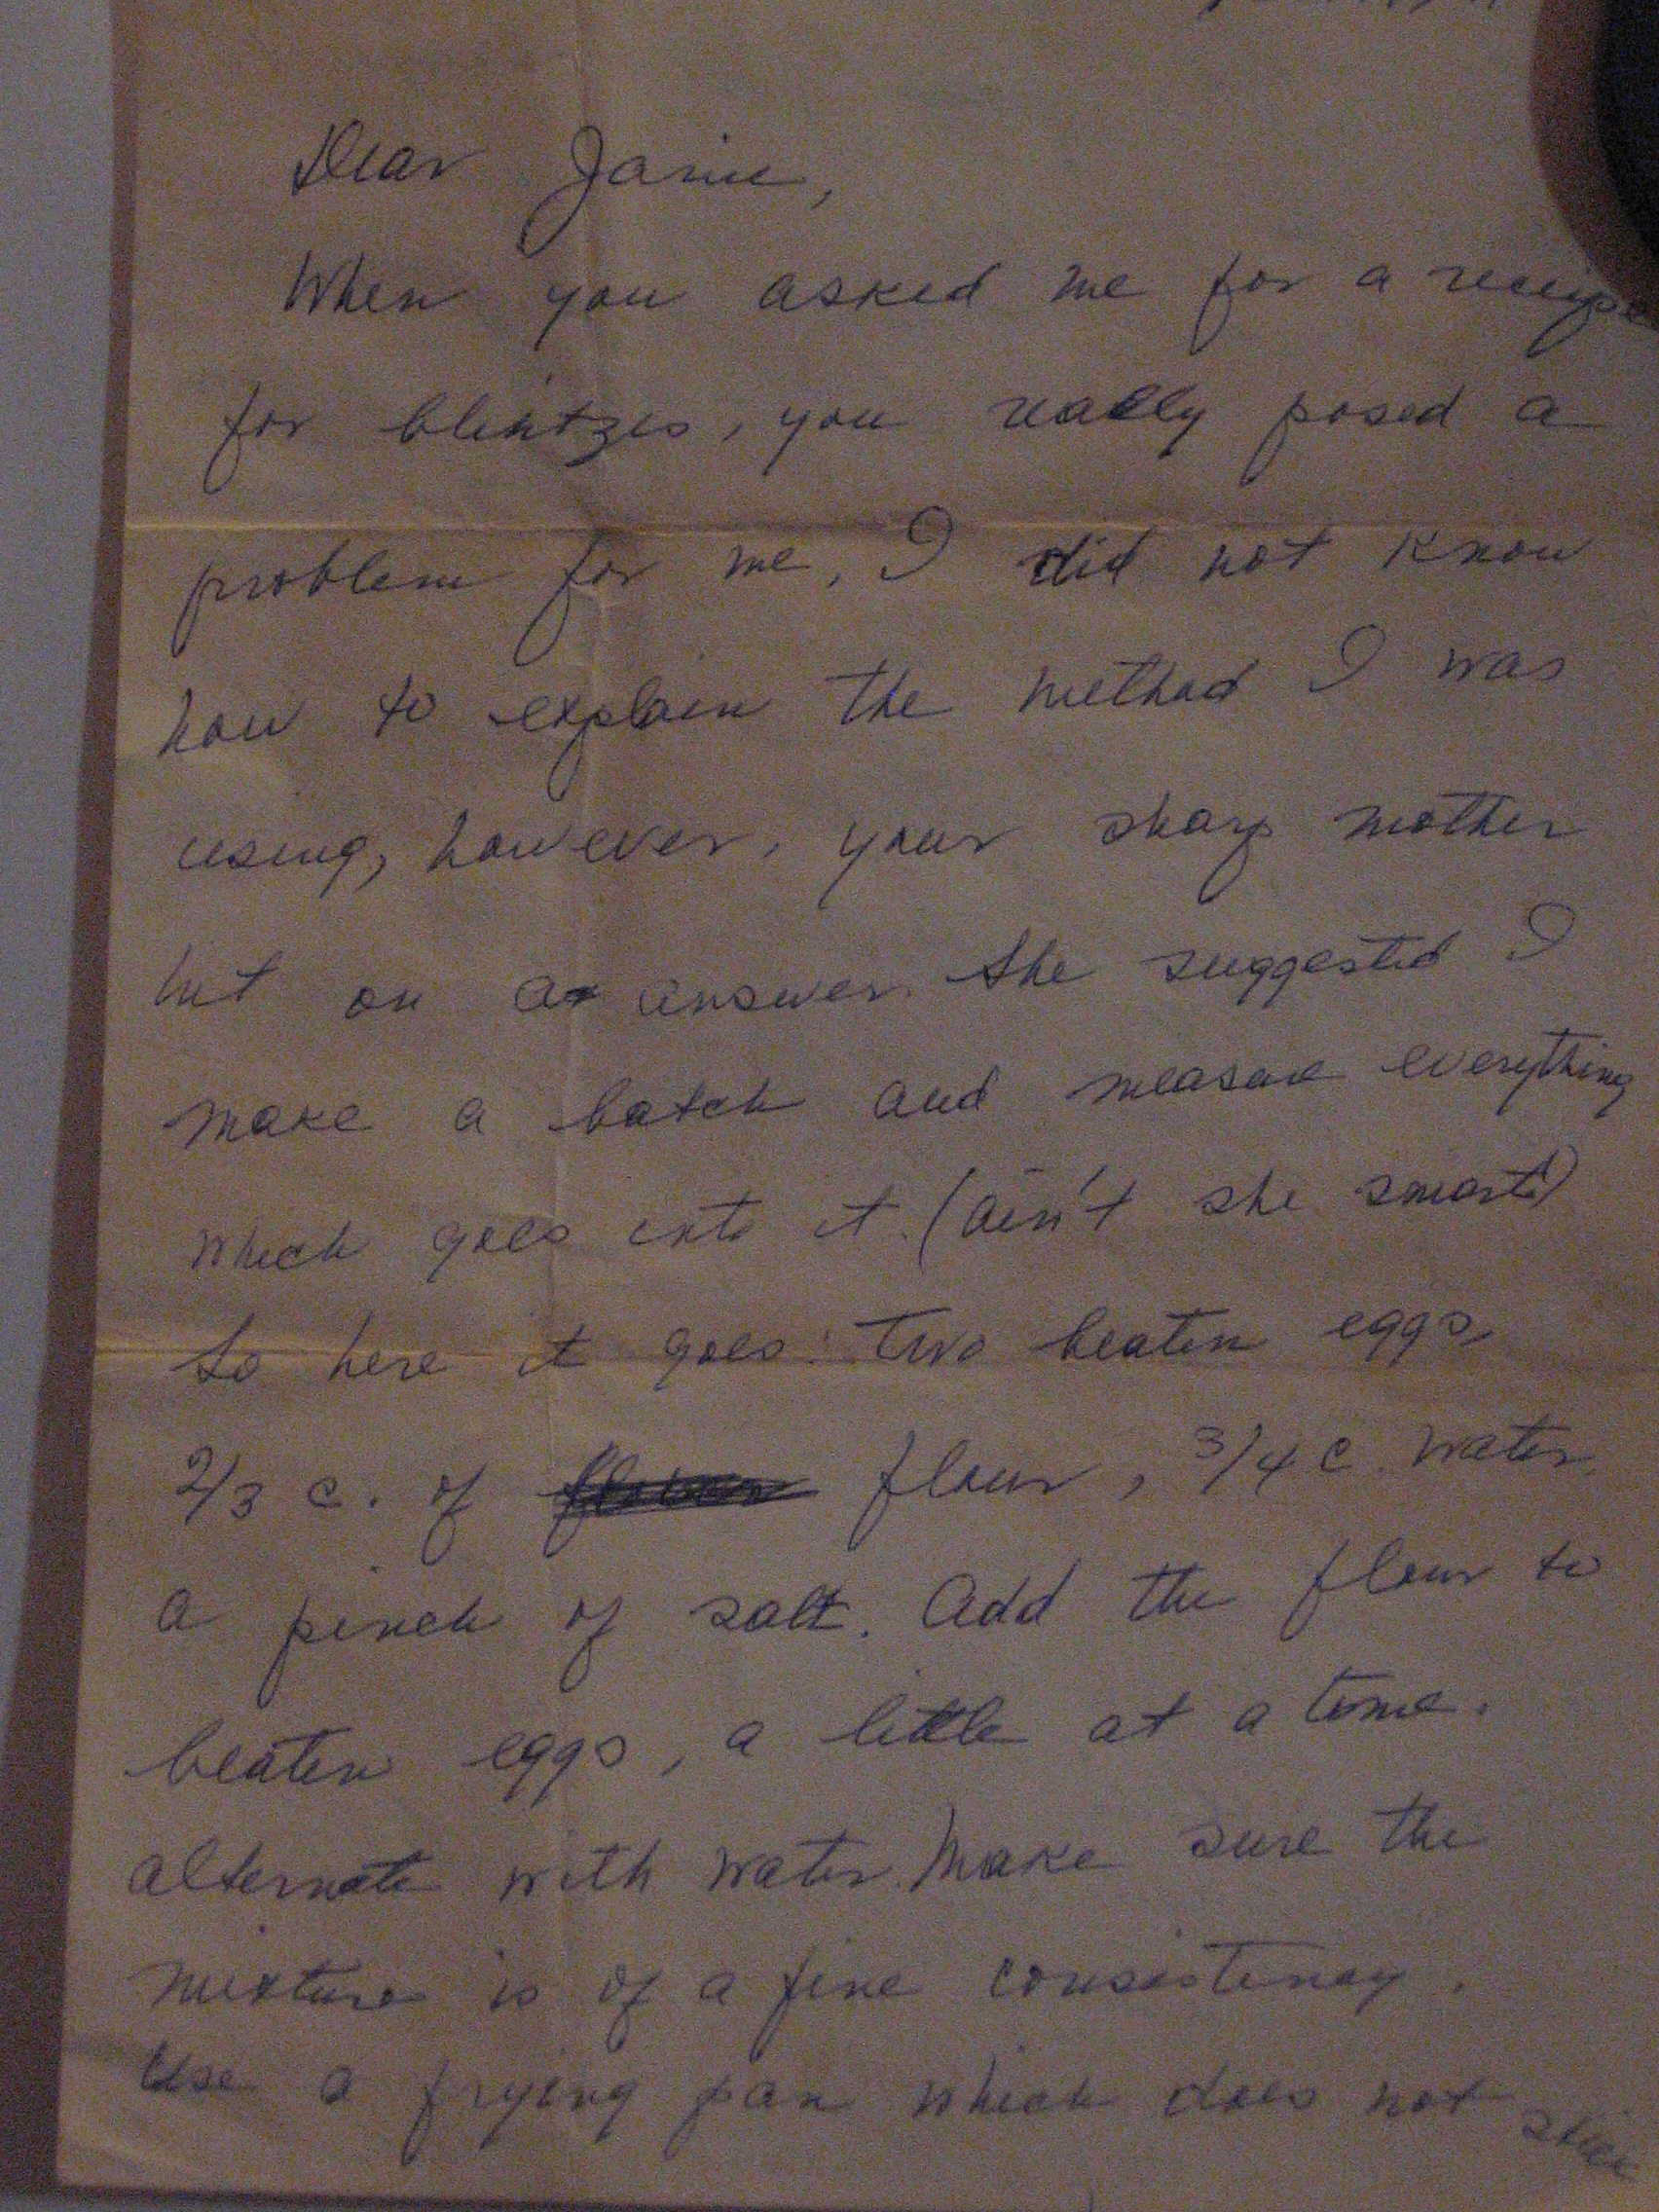 Dear Janie,
When you asked me for a recipe
for blintzes, you really posed a
problem for me, I did not know
how to explain the method I was
using, however, your sharp mother
hit on a answer. She suggested I
make a batch and measure everything
which goes into it. (ain't she smart)
So here it goes: Two beaten eggs,
2/3 c. of flour, 3/4 c. water,
a pinch of salt. Add the flour to
beaten eggs, a little at a time.
alternate with water. Make sure the
mixture is of a fine consistency.
Use a frying pan which does not stick